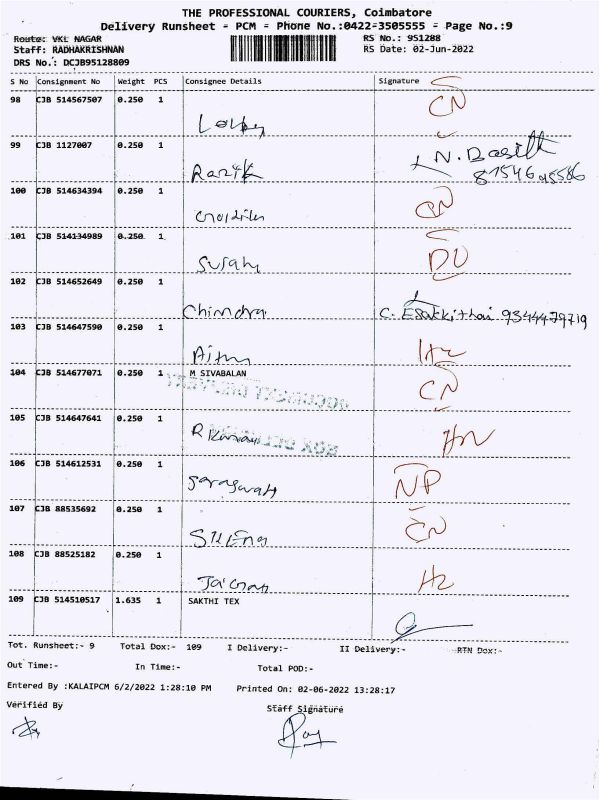 THE PROFESSIONAL COURIERS, Coimbatore
Delivery Runsheet = PCM = Phone No.:0422-3505555 = Page No.:9
Route: VKL NAGAR
RS No.: 951288
Staff: RADHAKRISHNAN
RS Date: 02-Jun-2022
DRS No.: DCJB95128809
S No Consignment No Weight PCS Consignee Details Signature
98 CJB 514567507 0.250 1 CN
99 CJB 1127007 0.250 1 Razik N. Basith
100 CJB 514634394 0.250 1
101 CJB 514134989 0.250 1 DU
102 CJB 514652649 0.250 1 Chindra C. Esakkithai 9344479719
103 CJB 514647590 0.250 1
104 CJB 514677071 0.250 1 M SIVABALAN CN
DOCUMENT DELIVERY
105 CJB 514647641 0.250 1
106 CJB 514612531 0.250 1 NP
107 CJB 88535692 0.250 1 CN
108 CJB 88525182 0.250 1
109 CJB 514510517 1.635 1 SAKTHI TEX
Tot. Runsheet:- 9 Total Dox:- 109 I Delivery:- II Delivery:- RTN Dox:-
Out Time:- In Time:- Total POD:-
Entered By :KALAIPCM 6/2/2022 1:28:10 PM Printed On: 02-06-2022 13:28:17
Verified By Staff Signature